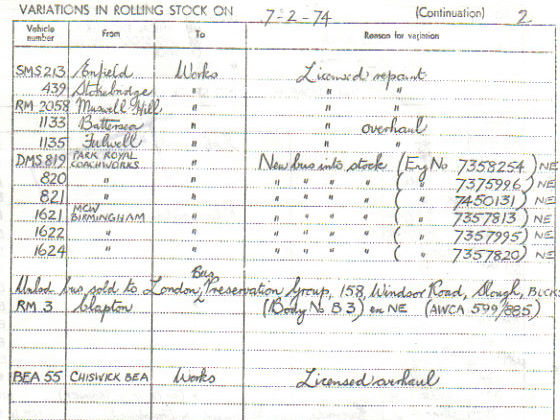 VARIATIONS IN ROLLING STOCK ON 7-2-74 (Continuation) 2.
Vehicle number From To Reason for variation
SMS 213 Enfield Works Licensed repaint
439 Stockbridge " " "
RM 2058 Muswell Hill " " "
1133 Battersea " " overhaul
1135 Fulwell " " "
DMS 819 PARK ROYAL COACHWORKS " New bus into stock (Eng No 7358254) NE
820 " " " " " " ( " 7375996) NE
821 " " " " " " ( " 7450131) NE
1621 MCW BIRMINGHAM " " " " " ( " 7357813) NE
1622 " " " " " " ( " 7357995) NE
1624 " " " " " " ( " 7357820) NE
Bus
Unlsd bus sold to London Preservation Group, 158, Windsor Road, Slough, BUCKS
RM 3 Clapton (Body No B3) en NE (AWCA 599/885)
BEA 55 CHISWICK BEA Works Licensed overhaul